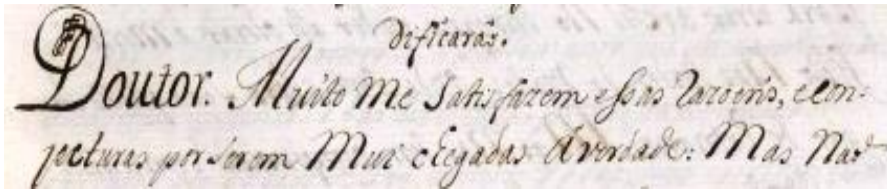 dificarás.
Doutor. Muito me satisfazem essas razoens, e con-
jecturas por serem mui chegadas á verdade: Mas Naõ